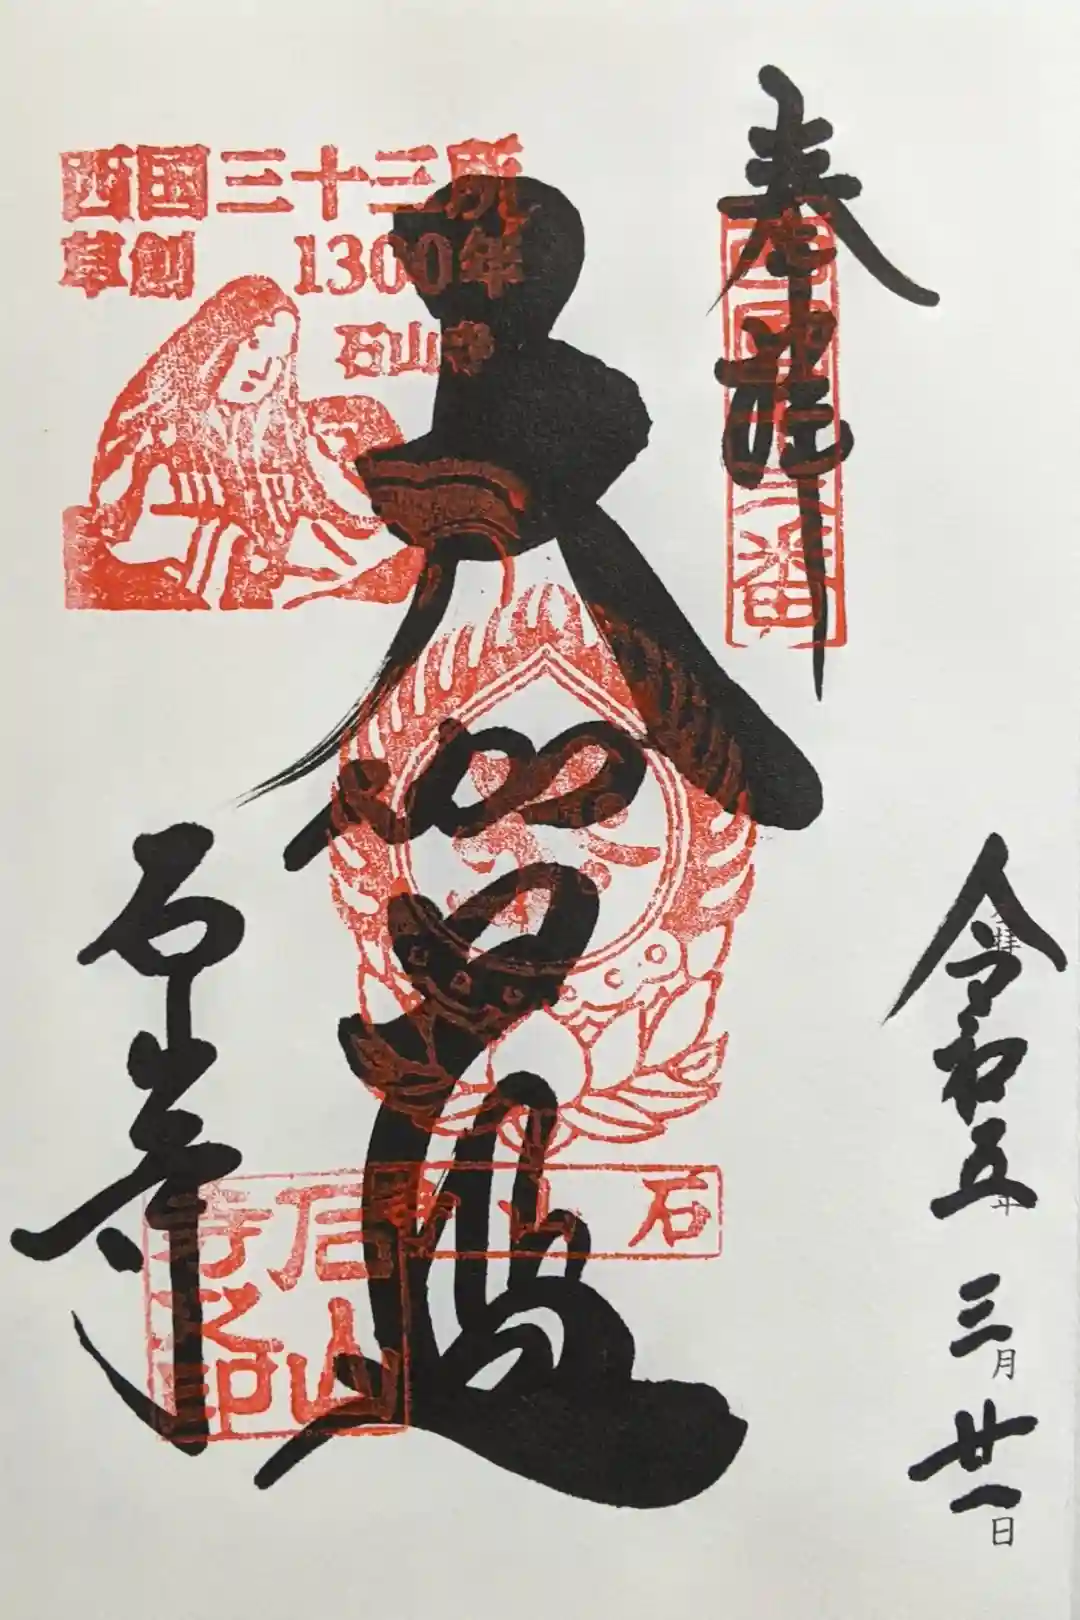 奉拝
西国十三番
令和五年
三月廿一日
大悲殿
石山寺
西国三十三所
草創 1300年
石山寺
石山寺
石山寺之印